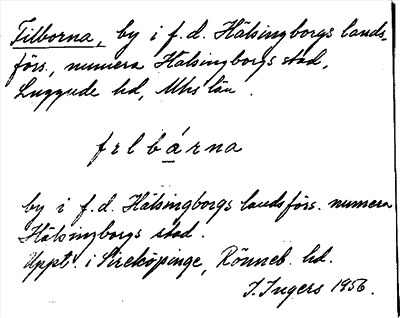 Filborna, by i f.d. Hälsingborgs lands-
förs., numera Hälsingborgs stad,
Luggude hd, Mhs län.
fɪlbárna
by i f.d. Hälsingborgs landsförs. numera
Hälsingborgs stad.
Uppt. i Sireköpinge, Rönneb. hd.
I. Ingers 1956.